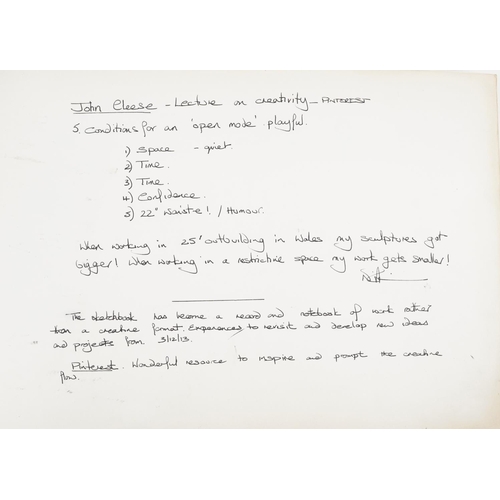 John Cleese - Lecture on creativity - PINTEREST
5. Conditions for an 'open mode' playful.
1) Space - quiet
2) Time.
3) Time.
4) Confidence.
5) 22" Waistie! / Humour.
When working in 25' outbuilding in Wales my sculptures got
bigger! When working in a restrictive space my work gets smaller!
The sketchbook has become a record and notebook of work other
than a creative format. Experiences to revisit and develop new ideas
and projects from 3/12/13.
Pinterest. Wonderful resource to inspire and prompt the creative
flow.